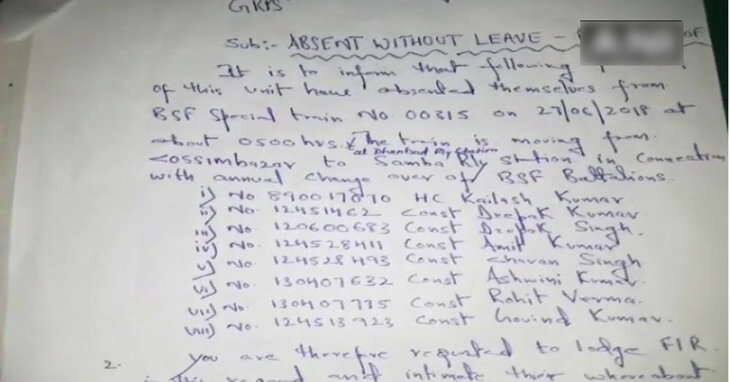 GRPS
Sub:- ABSENT WITHOUT LEAVE - OF
It is to inform that following
of this unit have absented themselves from
BSF Special train No 00315 on 27/06/2018 at
about 0500 hrs. The train is moving from
at Dhanbad Rly Station
Cossimbazar to Samba Rly Station in connection
with annual change over of BSF Battalions.
i) No 890017090 HC Kailash Kumar
ii) No. 12451462 Const Deepak Kumar
iii) No. 120600683 Const Deepak Singh.
iv) No. 124528411 Const Amit Kumar
v) No. 124528493 Const Charan Singh
vi) No. 130407632 Const Ashwini Kumar.
vii) No. 130407775 Const Rohit Verma.
viii) No. 124513923 Const Govind Kumar.
2. You are therefore requested to lodge FIR
in this regard and intimate their whereabout